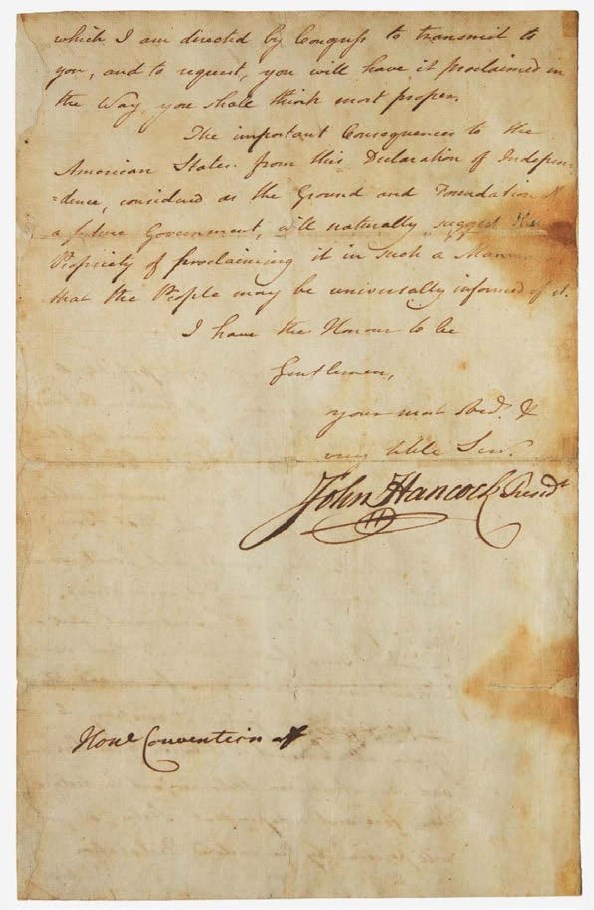 which I am directed by Congress to transmit to
you, and to request, you will have it proclaimed in
the Way, you shall think most proper.
The important Consequences to the
American States from this Declaration of Indepen=
=dence, considered as the Ground and Foundation
a future Government, will naturally suggest the
Propriety of proclaiming it in such a
that the People may be universally informed of it.
I have the Honour to be
Gentlemen,
your most Obed. &
very hble Ser.
John Hancock Presidt
Honle Convention of